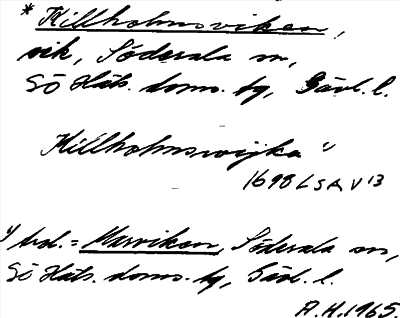 * Killholmsviken,
vik, Söderala sn,
SÖ Häls. doms. tg, Gävl. l.
Killholmswijka 1)
1698 LSA V 13
1) bd. = Marviken, Söderala sn,
SÖ Häls. doms. tg, Gävl. l.
A.H. 1965.